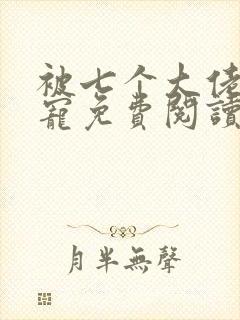 被七个大佬
寵免費閱讀
月半無聲